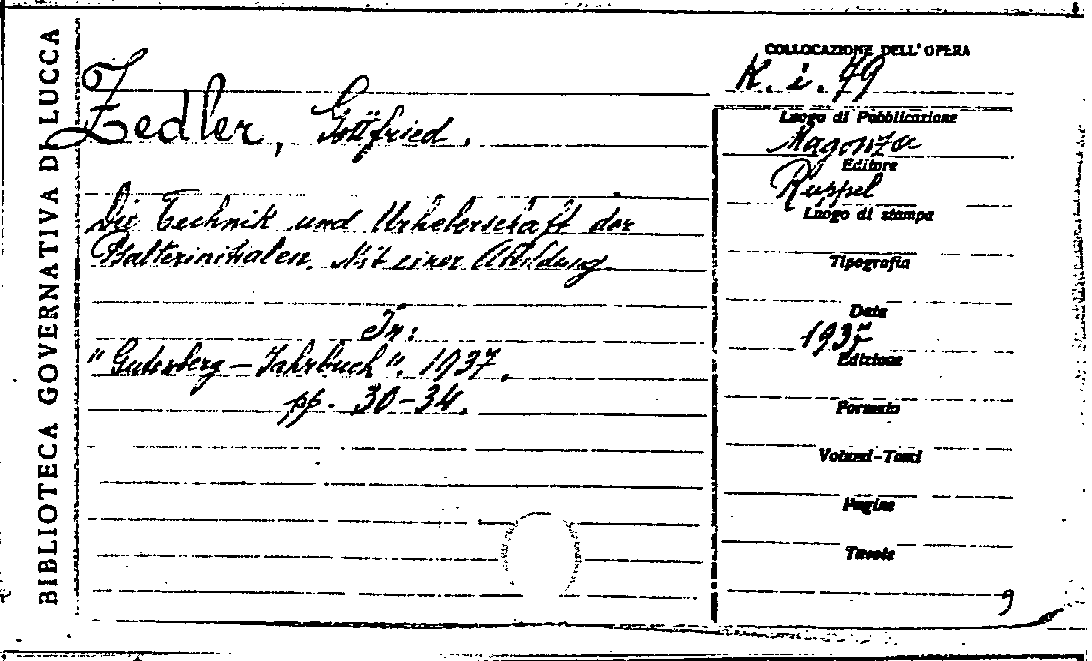 BIBLIOTECA GOVERNATIVA DI LUCCA
Zedler, Gottfried.
Die Technik und Urheberschaft der
Psalterinitialen. Mit einer Abbildung.
In:
"Gutenberg - Jahrbuch". 1937.
pp. 30-34.
COLLOCAZIONE DELL'OPERA
K. i. 79
Luogo di Pubblicazione
Magonza
Editore
Ruppel
Luogo di stampa
Tipografia
Data
1937
Edizione
Formato
Volumi-Tomi
Pagine
Tavole
9